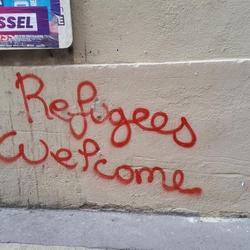 SSEL
Refugees
welcome